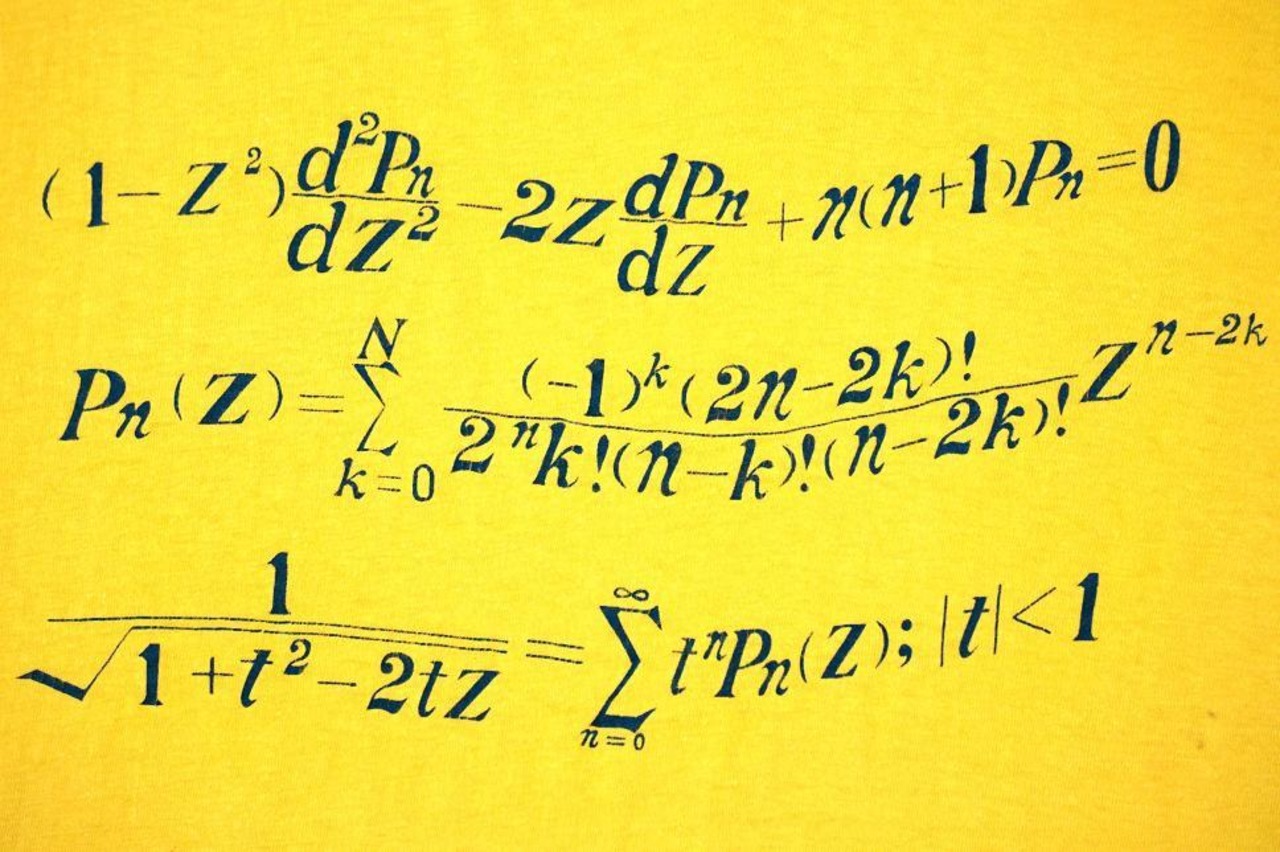 (1-z²)d²Pn/dz² -2z dPn/dz +n(n+1)Pn=0
Pn(z)=∑_{k=0}^{N} (-1)^k(2n-2k)!/2^n k!(n-k)!(n-2k)! z^{n-2k}
1/√(1+t²-2tz) = ∑_{n=0}^{∞} t^n Pn(z); |t|<1